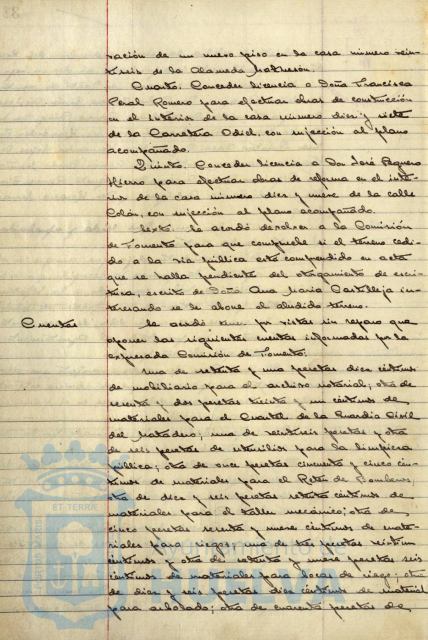 ración de un nuevo piso en la casa número vein-
tiseis de la Alameda Matheson.
Cuarto. Conceder licencia a Doña Francisca
Peral Romero para efectuar obras de construcción
en el interior de la casa número diez y siete
de la Carretera Odiel, con sujeción al plano
acompañado.
Quinto. Conceder licencia a Don José Reguero
Hierro para efectuar obras de reforma en el inte-
rior de la casa número diez y nueve de la calle
Colón, con sujeción al plano acompañado.
Sexto. Se acordó devolver a la Comisión
de Fomento para que compruebe si el terreno cedi-
do a la vía pública está comprendido en acta
que se halla pendiente del otorgamiento de escri-
tura, escrito de Doña Ana María Castilleja in-
teresando se le abone el aludido terreno.
Cuentas
Se acordó por vistas sin reparo que
oponer las siguientes cuentas informadas por la
expresada Comisión de Fomento:
Una de setenta y una pesetas diez céntimos
de mobiliario para el archivo notarial; otra de
sesenta y dos pesetas treinta y un céntimos de
materiales para el Cuartel de la Guardia Civil
del Matadero; una de veintiseis pesetas y otra
de seis pesetas de utensilios para la limpieza
pública; otra de once pesetas cincuenta y cinco cén-
timos de materiales para el Retén de Bomberos;
otra de diez y seis pesetas setenta céntimos de
materiales para el taller mecánico; otra de
cinco pesetas sesenta y nueve céntimos de mate-
riales para riegos; una de tres pesetas veinte
céntimos y otra de setenta y nueve pesetas seis
céntimos de materiales para bocas de riego; otra
de diez y seis pesetas diez céntimos de material
para arbolado; otra de cuarenta pesetas de
ET TERRÆ
Ayuntamiento de